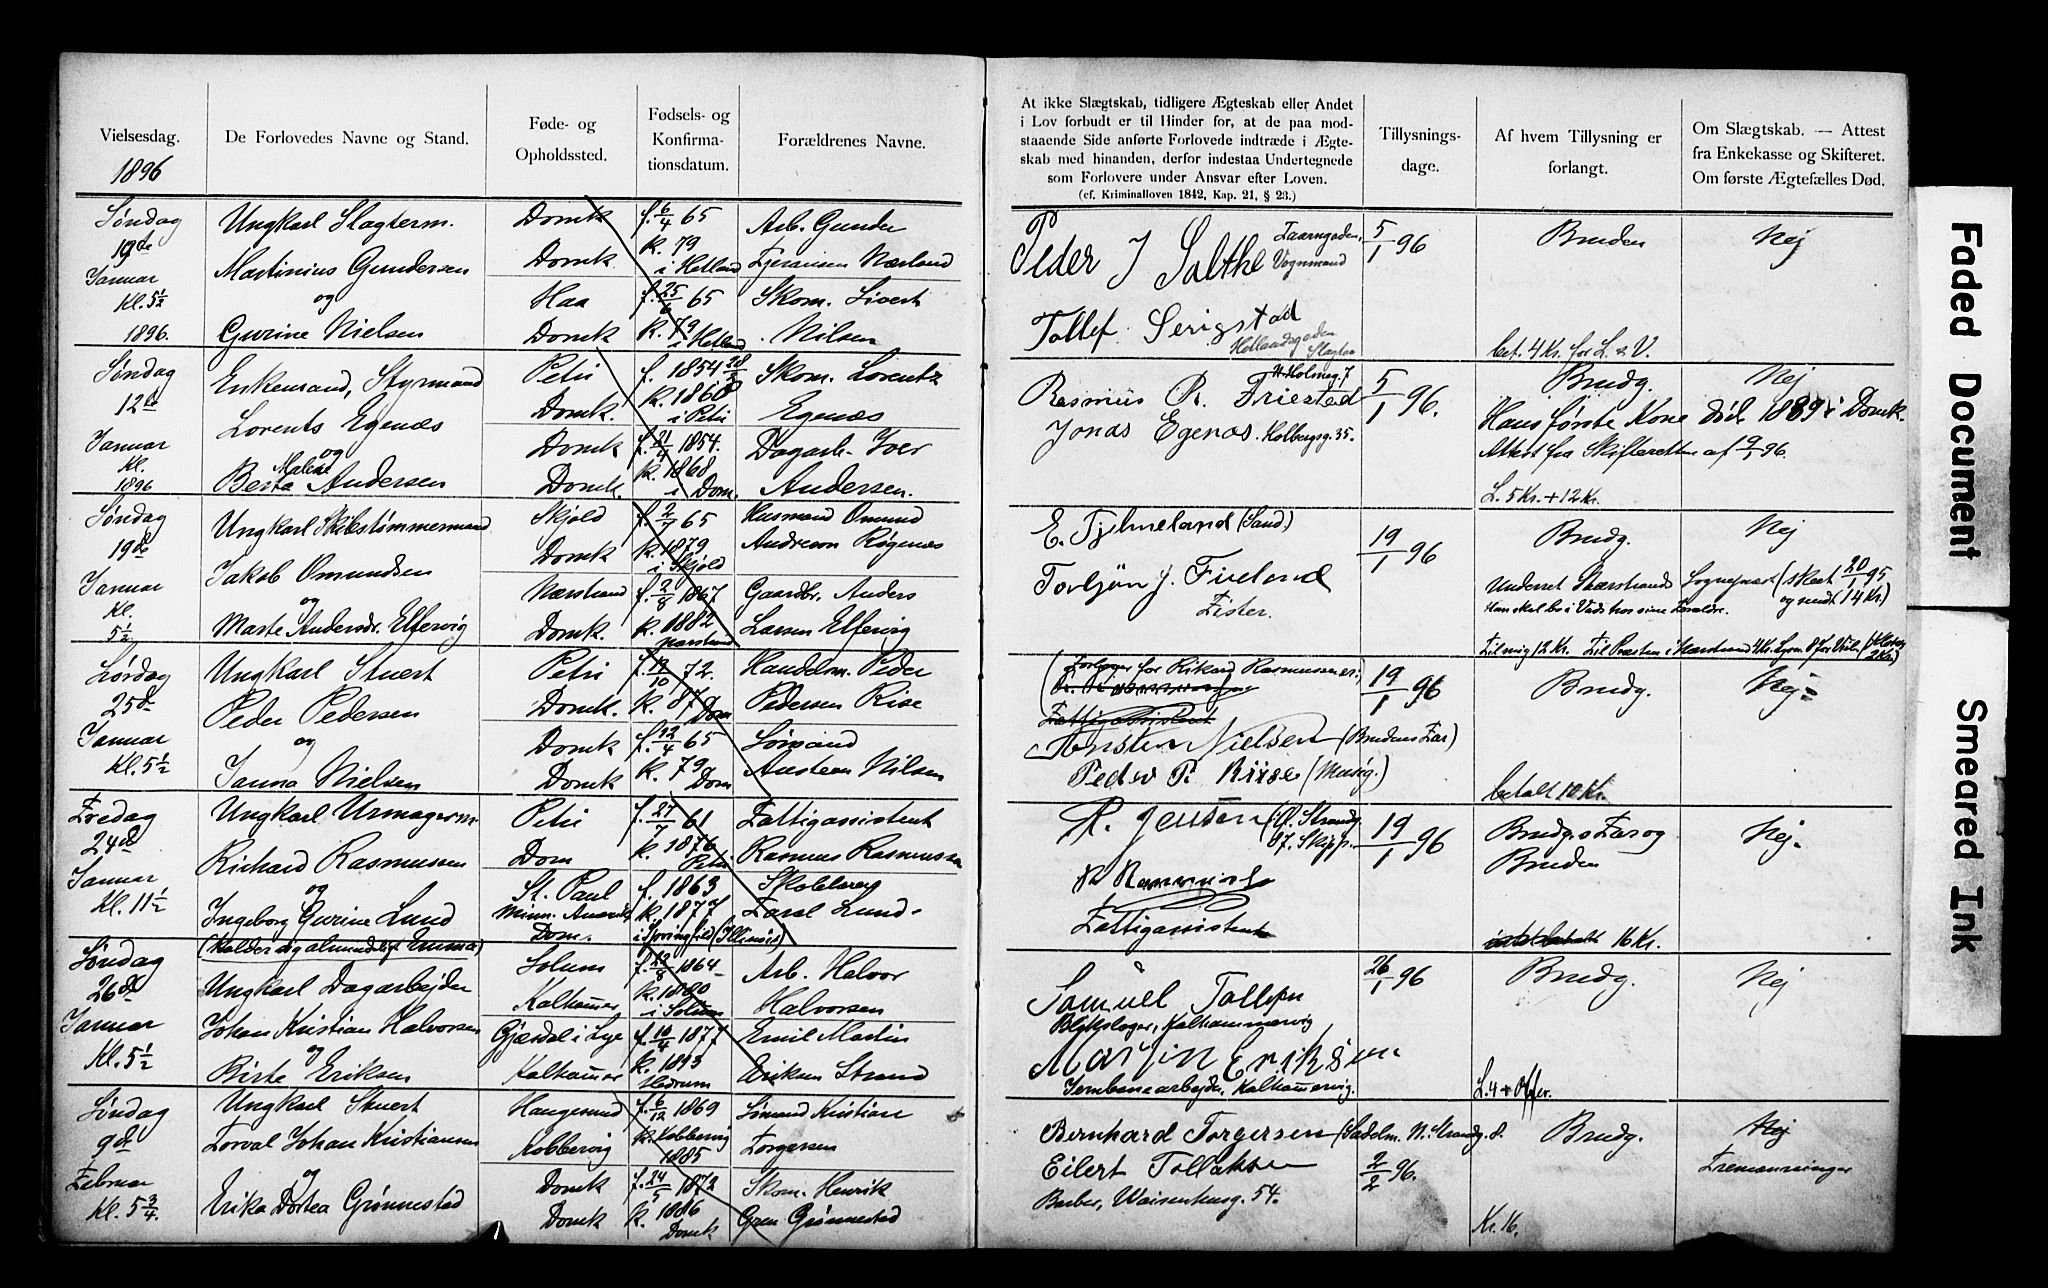 Vielsesdag.
1896
De Forlovedes Navne og Stand.
Føde- og
Opholdssted.
Fødsels- og
Konfirma-
tionsdatum.
Forældrenes Navne.
Søndag
19de
Januar
Kl. 5½
1896.
Ungkarl Slagterm.
Martinius Gundersen
og
Gurine Nielsen
Domk
Domk
Haa
Domk
f. 6/4 65
k. 79
i Hetland
f. 25/6 65
k. 79
i Hetland
Arb. Gunder
Nærland
Skom. Sivert
Nilsen
Søndag
12te
Januar
Kl.
1896
Enkemand, Styrmand
Lorents Egenæs
og
Malene
Berta Andersen
Petri
Domk.
Domk
Domk.
f. 1854 28/5
k. 1868
i Petri
f. 21/4 1854.
k. 1868
i Dom.
Skom. Lorentz
Egenæs
Dagarb. Iver
Andersen.
Søndag
19de
Januar
Kl.
5½
Ungkarl Skibstømmermand
Jakob Omundsen
og
Marte Andersdr. Elfervig
Skjold
Domk
Nærstrand
Domk.
f. 2/7 65
k. 1879
i Skjold
f. 2/8 1867
k. 1882
Nærstrand
Husmand Omund
Andreson Røgenæs
Gaardbr. Anders
Larsen Elfervig
Lørdag
25de
Januar
Kl. 5½
Ungkarl Stuert
Peder Pedersen
og
Janna Nielsen
Petri
Domk.
Domk
Domk
f. 19/10 72.
k. 87
Dom
f. 12/4 65
k. 79
Dom
Handelsm. Peder
Pedersen Rise
Sømand
Austeen Nilsen
Fredag
24de
Januar
Kl. 11½
Ungkarl Urmagerm.
Richard Rasmussen
og
Ingeborg Gurine Lund
(Kalder sig almindeligt Emma)
Petri
Dom
St. Paul
Minn. Amerik
Dom.
f. 27/7 61
k. 1876
Petri
f. 1863
k. 1877
i Springfield (Illinois)
Fattigassistent
Rasmus Rasmussen
Skolelærer
Taral Lund
Søndag
26de
Januar
Kl. 5½
Ungkarl Dagarbejder
Johan Kristian Halvorsen
og
Birte Eriksen
Solum
Kalhammer
Gjesdal i Lye
Kalhammer
f. 22/8 1864
k. 1880
i Solum
f. 10/4 1877
k. 1893
Hedrum
Arb. Halvor
Halvorsen
Emil Martin
Eriksen Strand
Søndag
9de
Februar
Kl. 5¾
Ungkarl Stuert
Torval Johan Kristiansen
og
Erika Dortea Grønnestad
Haugesund
Kobbervig
Domk
Domk
f. 6/12 1869
k. Kobbervig
1885
f. 24/5 1872
k. 1886
Domk
Sømand Kristian
Torgersen
Skom. Henrik
Gren Grønnestad
At ikke Slægtskab, tidligere Ægteskab eller Andet
i Lov forbudt er til Hinder for, at de paa mod-
staaende Side anførte Forlovede indtræde i Ægte-
skab med hinanden, derfor indestaa Undertegnede
som Forlovere under Ansvar efter Loven.
(cf. Kriminalloven 1842, Kap. 21, § 23.)
Tillysnings-
dage.
Af hvem Tillysning er
forlangt.
Om Slægtskab. — Attest
fra Enkekasse og Skifteret.
Om første Ægtefælles Død.
Peder J Salthe
Taarngaden,
Vognmand
Tollef. Serigstad
Hetlandsgaden
Slagter
5/1 96
Bruden
Nej
bet. 4 Kr. for L. & V.
Rasmus R. Friestad
N. Holmeg. 7
Jonas Egenæs. Holbergsg. 35.
5/1 96.
Brudg.
Nej
Hans første Kone død 1889 i Domk.
Attest fra Skifteretten af 19/1 96.
L. 5 Kr. + 12 Kr.
E. Tjelmeland (Sand)
Torbjøn J. Fiveland
Fisker.
19/1 96
Brudg.
Nej
Underret Nærstrands Sognepræst (skeet 20/1 95
og sendt 14 Kr.)
Han skal bo i Vads hos sine Forældr.
Til mig 12 Kr. Til Præsten i Nærstrand 4 Kr.
(Forlover for Rikard Rasmussen er:
Fattigassistent
Austen Nielsen (Brudens Far)
Peder P. Riise (Musig.)
19/1 96
Brudg.
Nej
betalt 10 Kr.
R. Jensen (Ø. Strandg.
87. Skipp.
R Rasmussen
Fattigassistent
19/1 96
Brudg.s Far og
Bruden
Nej
16 Kr.
Samuel Tollefsen
Blikslager, Kalhammervig
Martin Eriksen
Jernbanearbejder, Kalhammervig.
26/1 96
Brudg.
Nej
L. 4 + Offer.
Bernhard Torgersen (Sadelm. N. Strandg. 8.
Eilert Tollaksen
Barber, Waisenhusg. 54.
2/2 96.
Brudg.
Nej
Fremmøninger
Kr. 16.
Faded Document
Smeared Ink